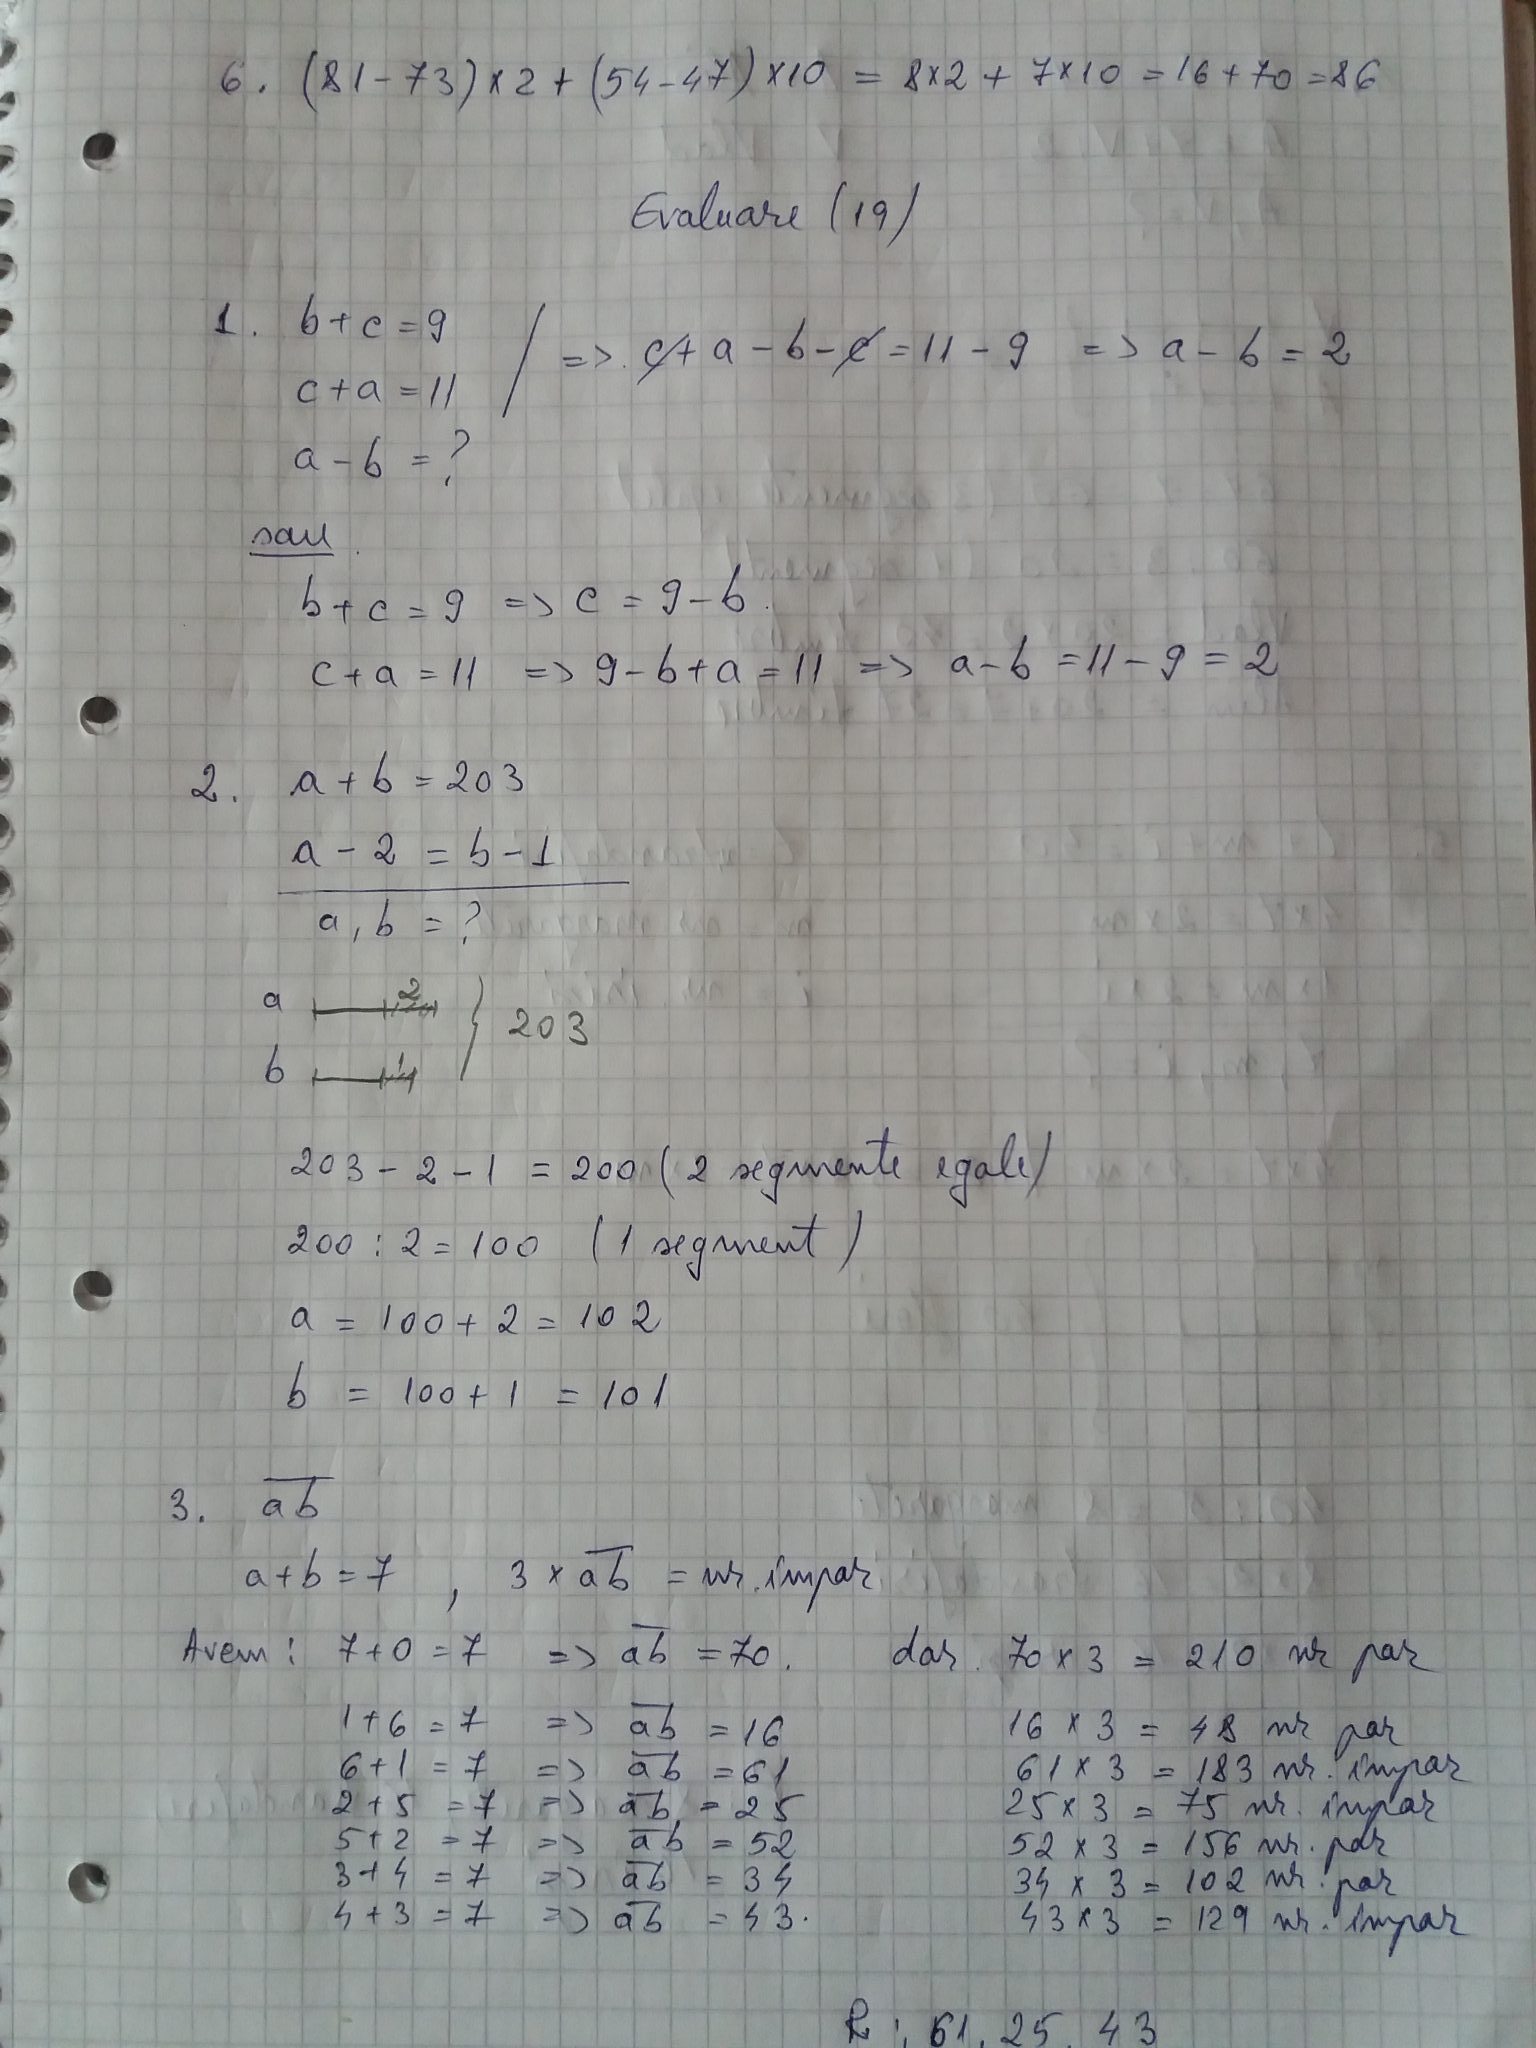 6. (81-73)×2+(54-47)×10 = 8×2 + 7×10 = 16+70 = 86
Evaluare (19)
1. b+c=9
c+a=11
=> c+a-b-c=11-9 => a-b=2
a-b=?
sau
b+c=9 => c=9-b
c+a=11 => 9-b+a=11 => a-b=11-9=2
2. a+b=203
a-2=b-1
a,b=?
a 2
b 1
} 203
203-2-1 = 200 (2 segmente egale)
200:2=100 (1 segment)
a = 100+2 = 102
b = 100+1 = 101
3. a̅b̅
a+b=7 , 3×a̅b̅ = nr. impar
Avem: 7+0=7 => a̅b̅=70. dar 70×3 = 210 nr par
1+6=7 => a̅b̅=16 16×3 = 48 nr par
6+1=7 => a̅b̅=61 61×3 = 183 nr. impar
2+5=7 => a̅b̅=25 25×3 = 75 nr. impar
5+2=7 => a̅b̅=52 52×3 = 156 nr. par
3+4=7 => a̅b̅=34 34×3 = 102 nr. par
4+3=7 => a̅b̅=43. 43×3 = 129 nr. impar
R: 61, 25, 43